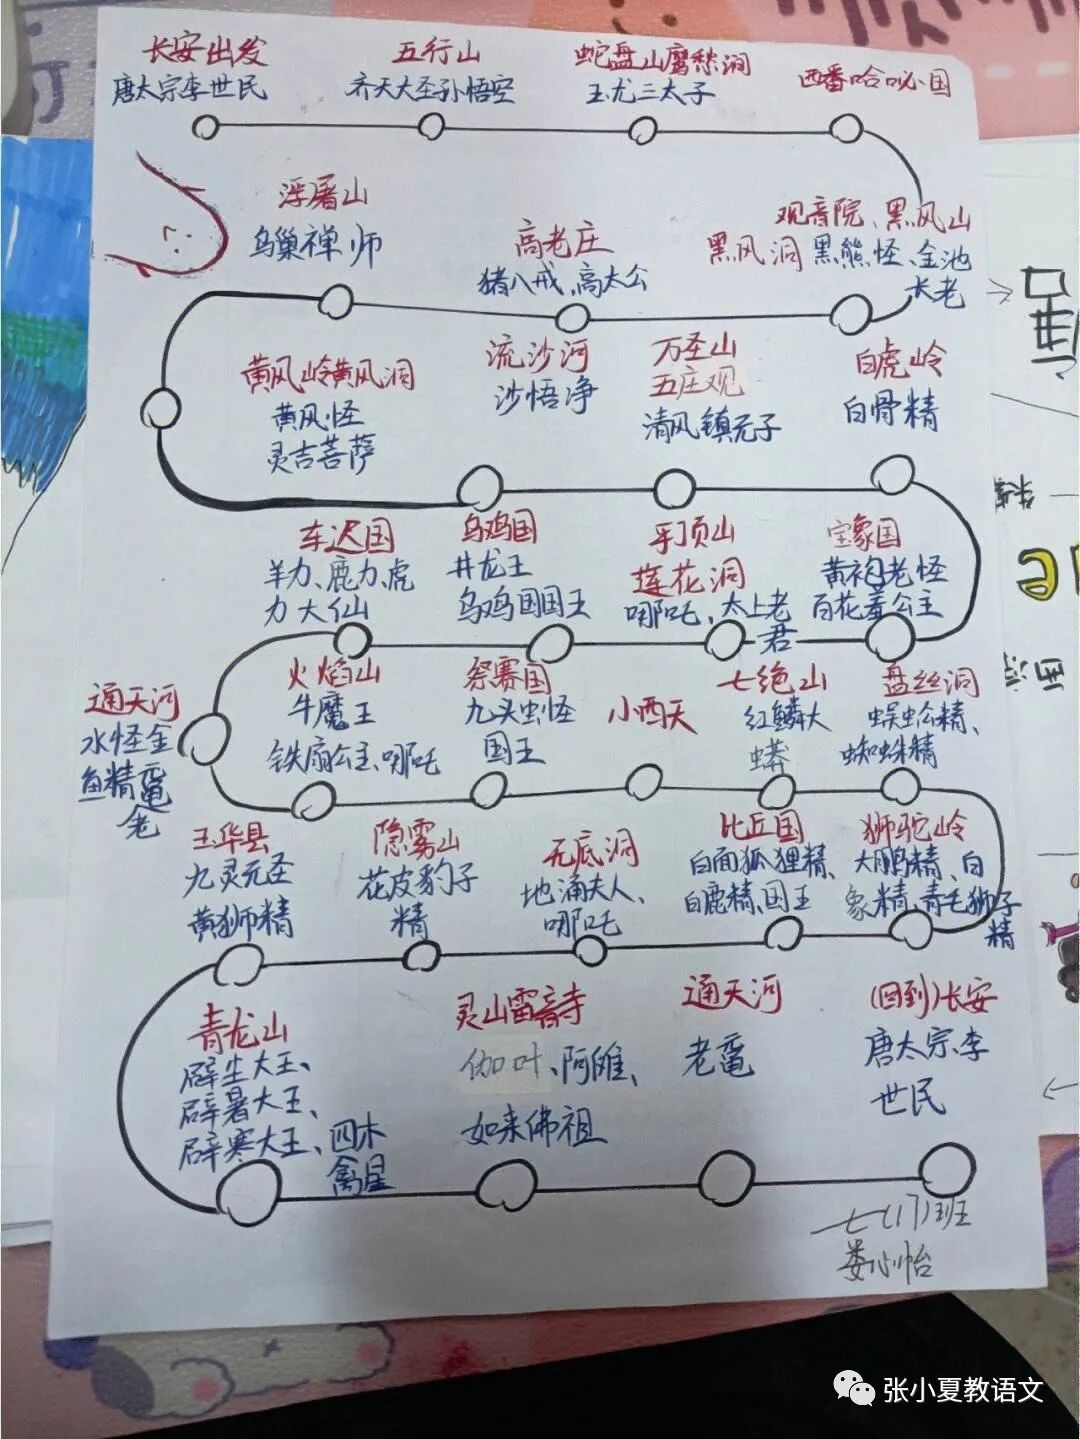 长安出发
唐太宗李世民
五行山
齐天大圣孙悟空
蛇盘山鹰愁涧
玉龙三太子
西番哈咇国
观音院、黑风山
黑风洞 黑熊怪、金池
长老
高老庄
猪八戒、高太公
浮屠山
乌巢禅师
黄风岭黄风洞
黄风怪
灵吉菩萨
流沙河
沙悟净
万圣山
五庄观
清风镇元子
白虎岭
白骨精
宝象国
黄袍老怪
百花羞公主
平顶山
莲花洞
哪吒、太上老
君
乌鸡国
井龙王
乌鸡国国王
车迟国
羊力、鹿力、虎
力大仙
通天河
水怪金
鱼精鼋
老
火焰山
牛魔王
铁扇公主、哪吒
祭赛国
九头虫怪
国王
小西天
七绝山
红鳞大
蟒
盘丝洞
蜈蚣精、
蜘蛛精
狮驼岭
大鹏精、白
象精、青毛狮子
精
比丘国
白面狐狸精、
白鹿精、国王
无底洞
地涌夫人、
哪吒
隐雾山
花皮豹子
精
玉华县
九灵元圣
黄狮精
青龙山
辟尘大王、
辟暑大王、
辟寒大王、四木
禽星
灵山雷音寺
伽叶、阿傩、
如来佛祖
通天河
老鼋
(回到)长安
唐太宗、李
世民
七(17)班
娄小怡
张小夏教语文